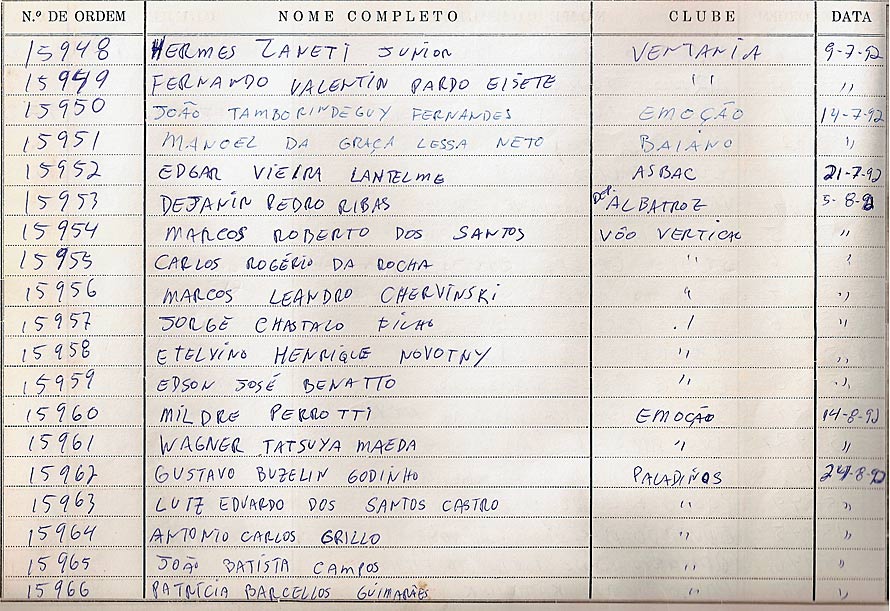 N.º DE ORDEM NOME COMPLETO CLUBE DATA
15948 HERMES ZANETI JUNIOR VENTANIA 9-7-92
15949 FERNANDO VALENTIN PARDO EISETE " "
15950 JOÃO TAMBORINDEGUY FERNANDES EMOÇÃO 14-7-92
15951 MANOEL DA GRAÇA LESSA NETO BAIANO "
15952 EDGAR VIEIRA LANTELME ASBAC 21-7-92
15953 DEJANIR PEDRO RIBAS DEP. ALBATROZ 5-8-92
15954 MARCOS ROBERTO DOS SANTOS VÔO VERTICAL "
15955 CARLOS ROGÉRIO DA ROCHA " "
15956 MARCOS LEANDRO CHERVINSKI " "
15957 JORGE CHASTALO FILHO " "
15958 ETELVINO HENRIQUE NOVOTNY " "
15959 EDSON JOSÉ BENATTO " "
15960 MILDRE PERROTTI EMOÇÃO 14-8-92
15961 WAGNER TATSUYA MAEDA " "
15962 GUSTAVO BUZELIN GODINHO PALADINOS 24-8-92
15963 LUIZ EDUARDO DOS SANTOS CASTRO " "
15964 ANTONIO CARLOS GRILLO " "
15965 JOÃO BATISTA CAMPOS " "
15966 PATRÍCIA BARCELLOS GUIMARÃES " "